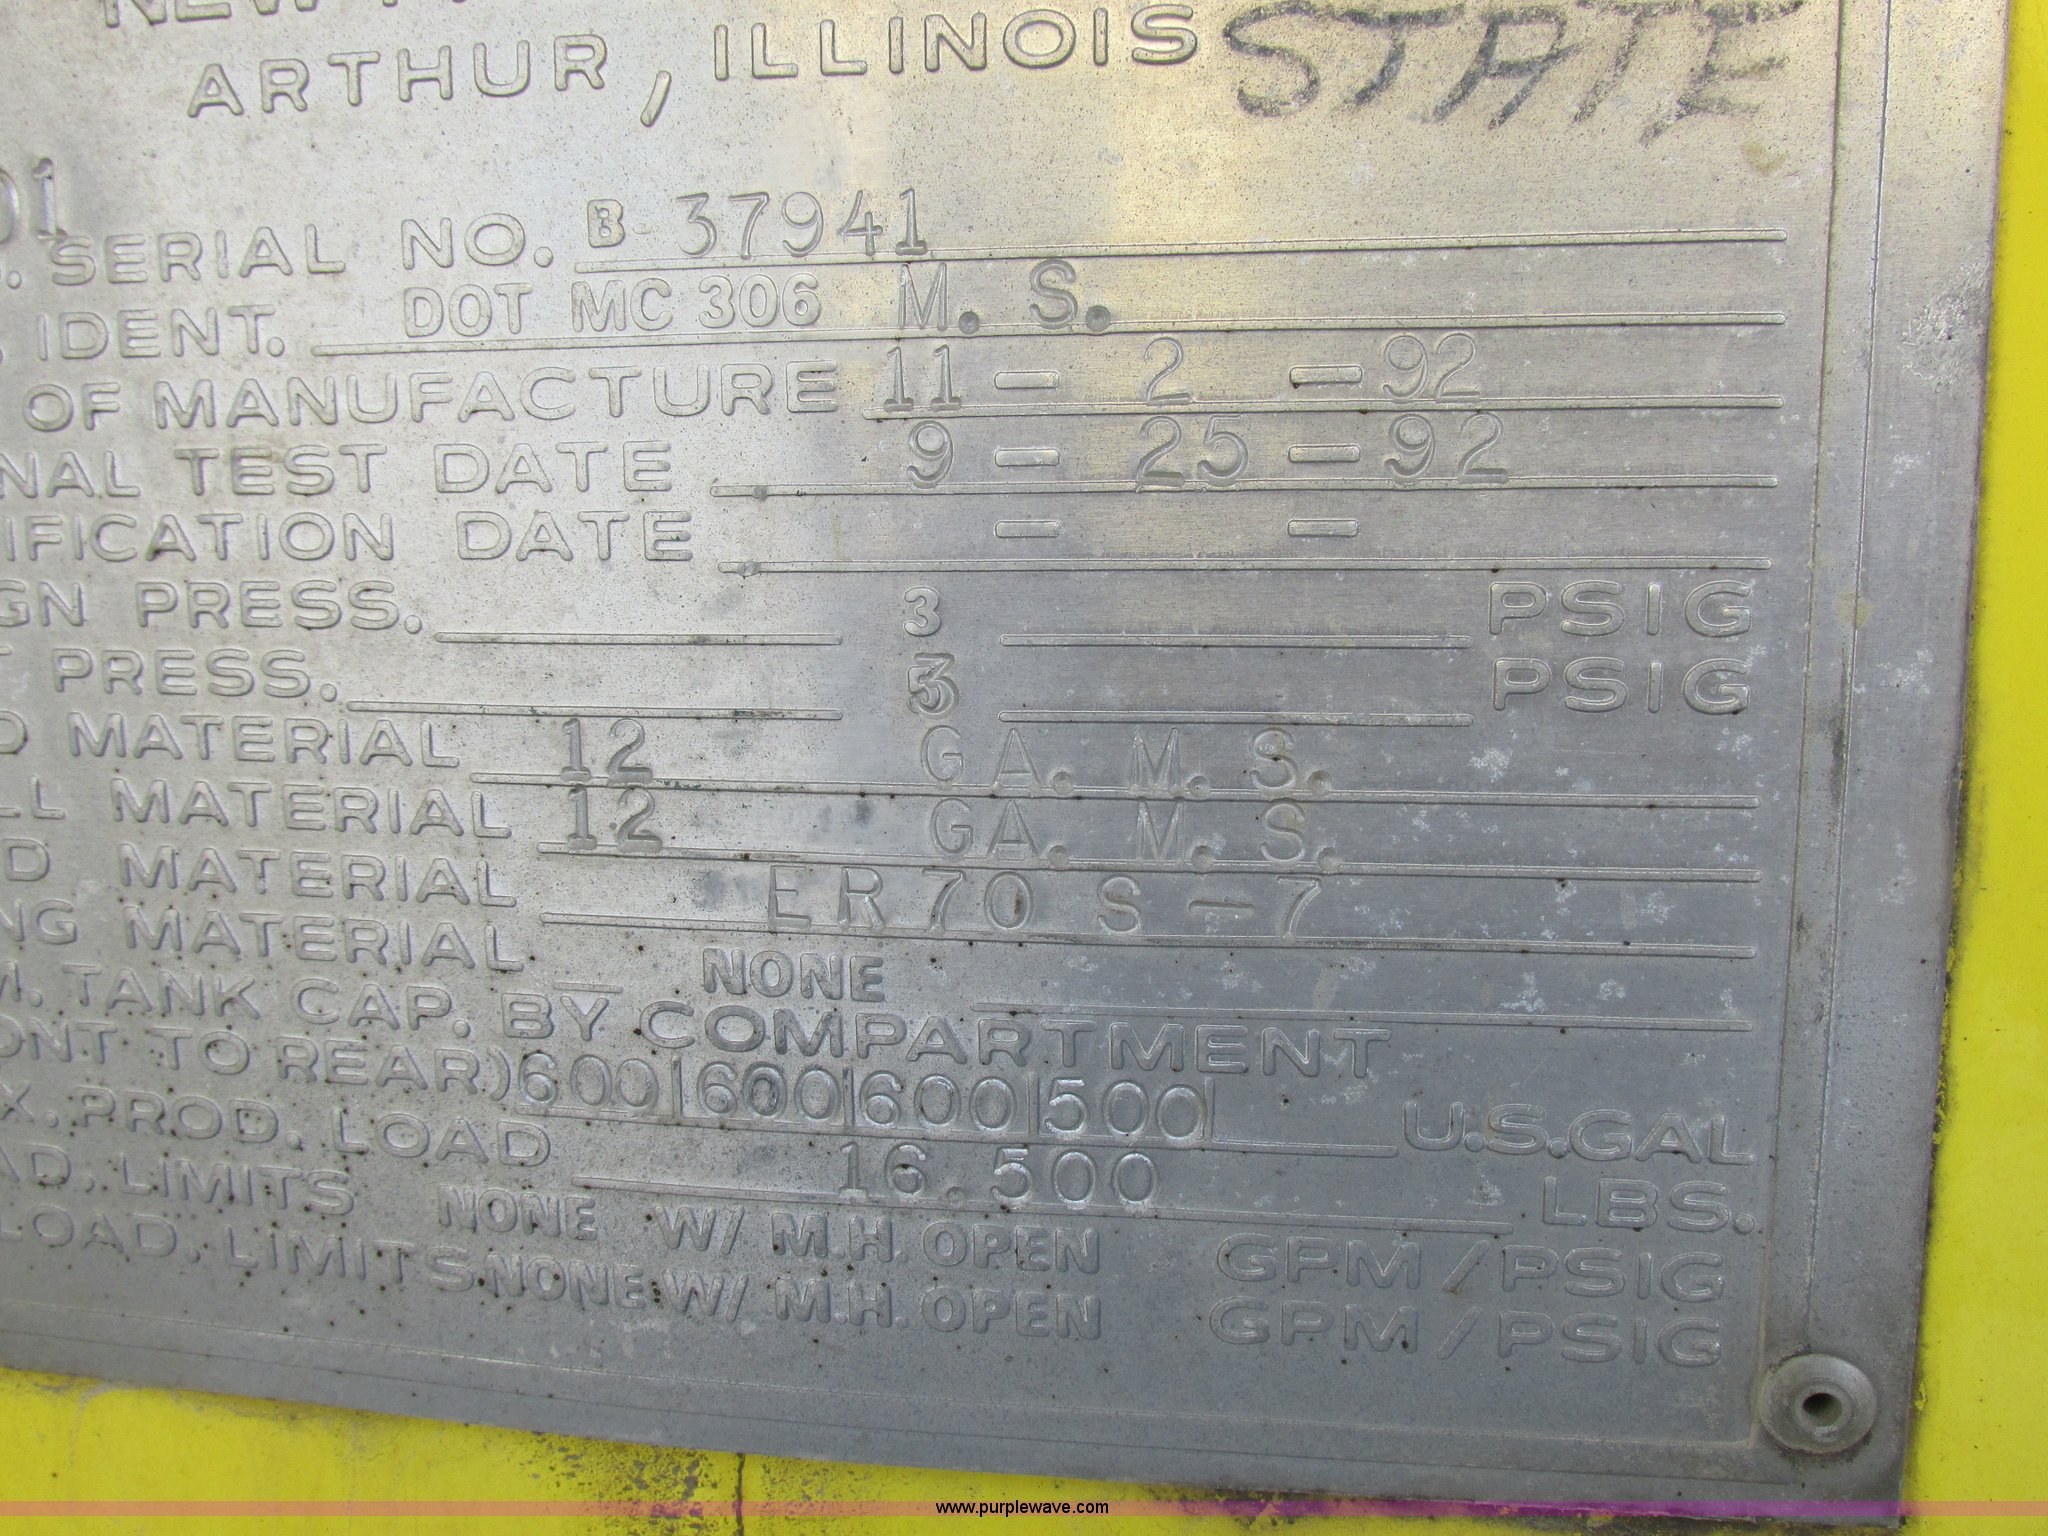 ARTHUR, ILLINOIS STATE
01
SERIAL NO. B-37941
IDENT. DOT MC 306 M. S.
OF MANUFACTURE 11 - 2 - 92
NAL TEST DATE 9 - 25 - 92
IFICATION DATE - -
GN PRESS. 3 PSIG
PRESS. PSIG
D MATERIAL 12 GA. M. S.
LL MATERIAL 12 GA. M. S.
D MATERIAL ER70S-7
NG MATERIAL NONE
M. TANK CAP. BY COMPARTMENT
ONT TO REAR) 600|600|600|500| U.S.GAL
X. PROD. LOAD 16.500 LBS.
AD. LIMITS NONE W/ M.H. OPEN GPM/PSIG
LOAD. LIMITS NONE W/ M.H. OPEN GPM/PSIG
www.purplewave.com